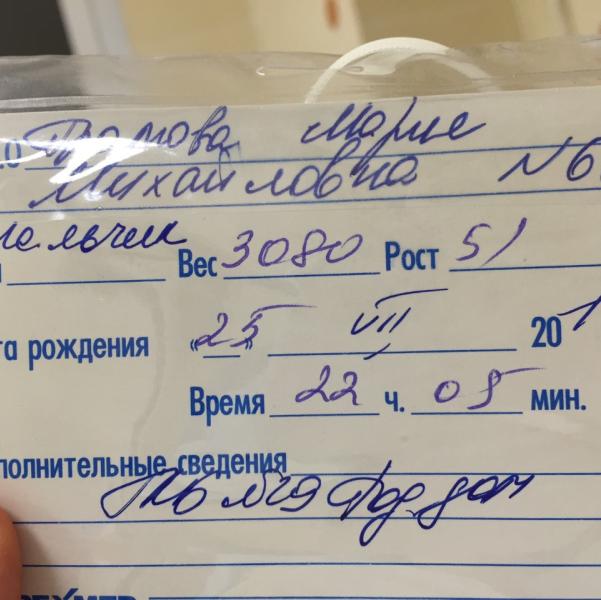 .О Громова Марие
Михайловна N6
мальчик Вес 3080 Рост 51
та рождения «25» VII 201
Время 22 ч. 05 мин.
полнительные сведения
ГКБ №29 Род.дом